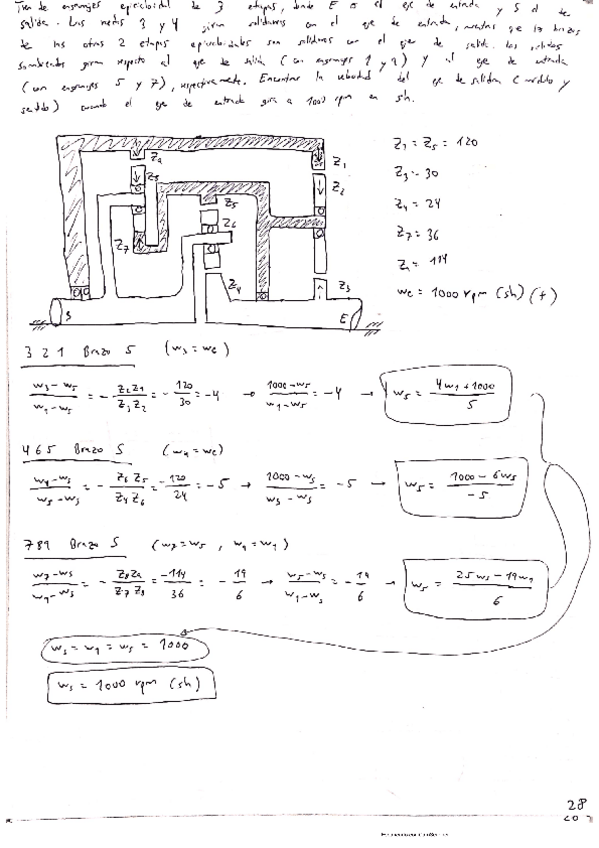 Tren de engranajes epicicloidal de 3 etapas, donde E es el eje de entrada y S el de
salida. Las ruedas 3 y 4 giran solidarias con el eje de entrada, mientras que los brazos
de las otras 2 etapas epicicloidales son solidarios con el eje de salida. Las
sombreados giran respecto al eje de salida (con engranajes 1 y 9) y al eje de entrada
(con engranajes 5 y 7), respectivamente. Encontrar la velocidad del eje de salida (módulo y
sentido) cuando el eje de entrada gira a 1000 rpm en sh.
Z9
Z8
Z7
Z5
Z6
Z4
Z1
Z2
Z3
S
E
Z1 = Z5 = 120
Z3 = 30
Z4 = 24
Z7 = 36
Z9 = 114
we = 1000 rpm (sh) (+)
3 2 1 Brazo 5 (w3 = we)
w3-w5 / w1-w5 = - Z2 Z1 / Z3 Z2 = - 120/30 = -4 → 1000-w5 / w1-w5 = -4 → w5 = 4w1+1000 / 5
4 6 5 Brazo S (w4 = we)
w4-ws / w5-ws = - Z6 Z5 / Z4 Z6 = -120/24 = -5 → 1000-ws / w5-ws = -5 → w5 = 1000-6ws / -5
7 8 9 Brazo S (w7 = w5, w9 = w1)
w7-ws / w9-ws = - Z8 Z9 / Z7 Z8 = -114/36 = -19/6 → w5-ws / w1-ws = -19/6 → w5 = 25ws-19w1 / 6
ws = w1 = w5 = 1000
ws = 1000 rpm (sh)
28